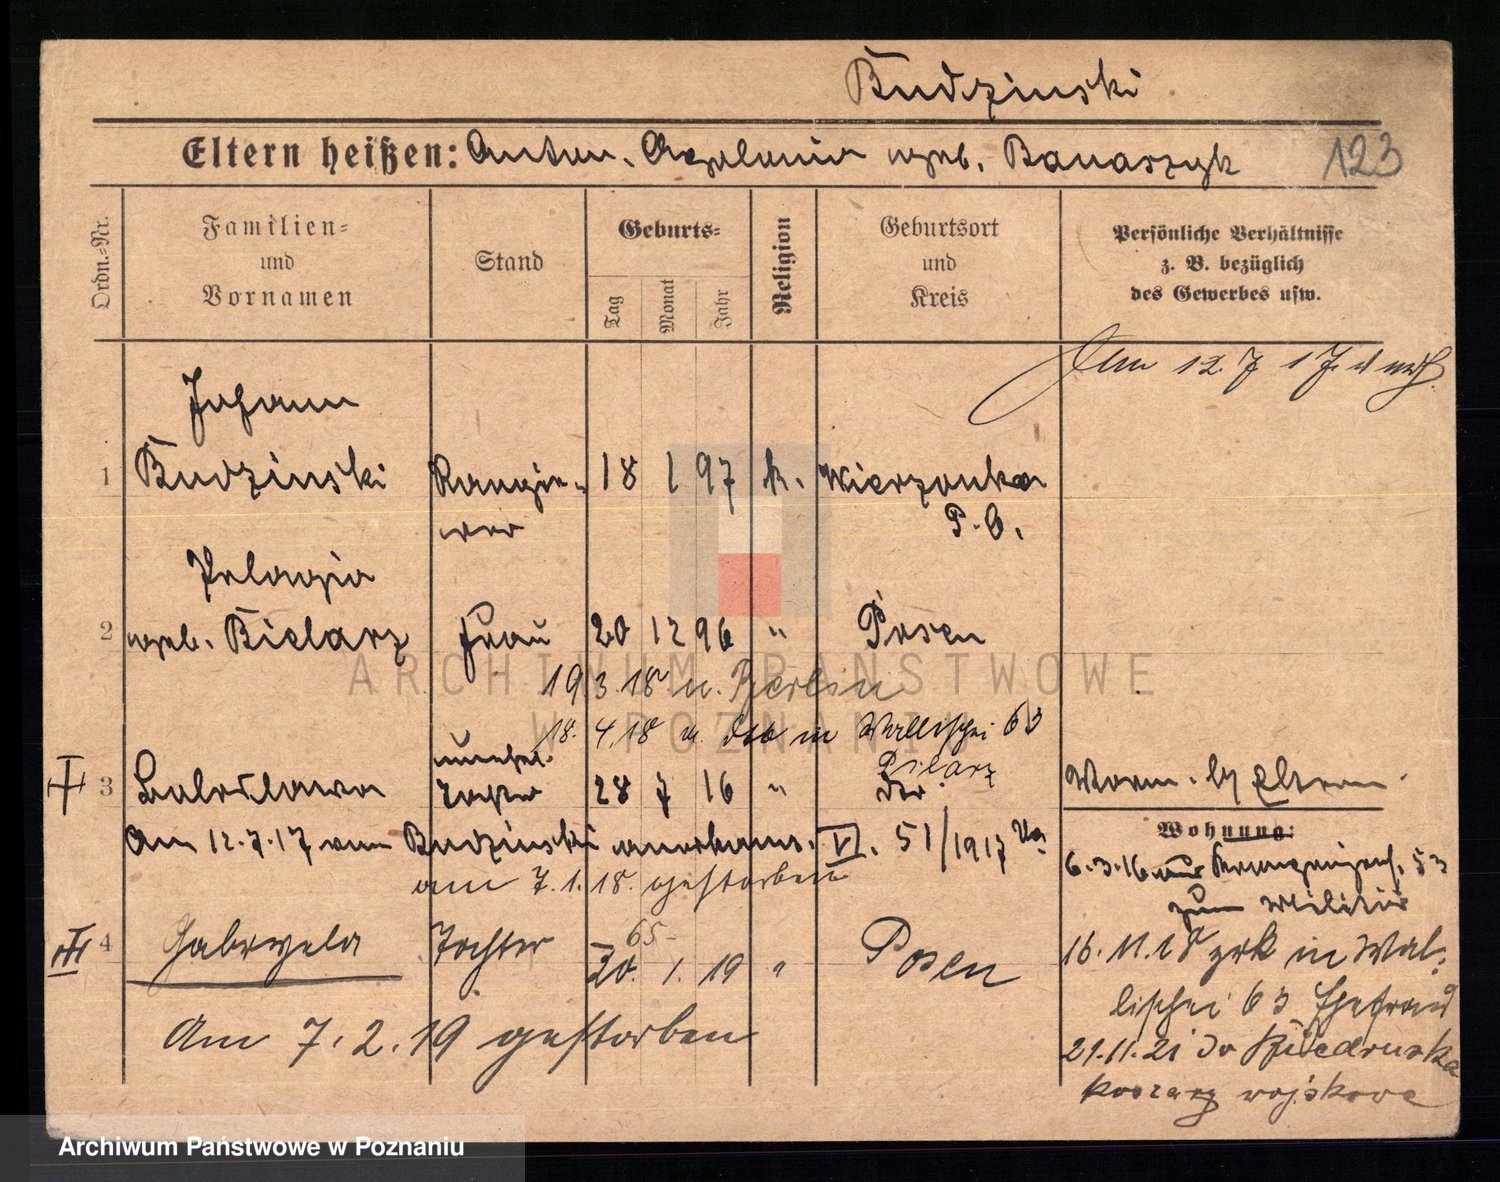 Budzinski
Eltern heißen: Anton. Apolonia geb. Banaszyk
123
Ordn.=Nr.
Familien=
und
Vornamen
Stand
Geburts=
Tag
Monat
Jahr
Religion
Geburtsort
und
Kreis
Persönliche Verhältnisse
z. B. bezüglich
des Gewerbes usw.
12. 7 17
Johann
1 Budzinski Rangie- 18 1 97 k. Wierzonka
rer P. O.
Pelagia
2 geb. Bielarz Frau 20 12 96 " Posen
19 3. 18 n. Berlin
18. 4. 18 in Wallischei 63
unehel. Bilarz
3 Tochter 28 7 16 " der
Worm. by Eltern.
Am 12.7.17 vom Budzinski anerkannt. VI. 51/1917
Wohnung:
am 7.1.18. gestorben
6.3.16 53
zum Militär
4 Gabryela Tochter 20. 1. 19 " Posen
65
16.11.18 zrk in Wal-
lischei 63 Ehefrau
Am 7.2.19 gestorben
21.11.21 do Biedruska
koszary wojskowe
ARCHIWUM PAŃSTWOWE
W POZNANIU
Archiwum Państwowe w Poznaniu